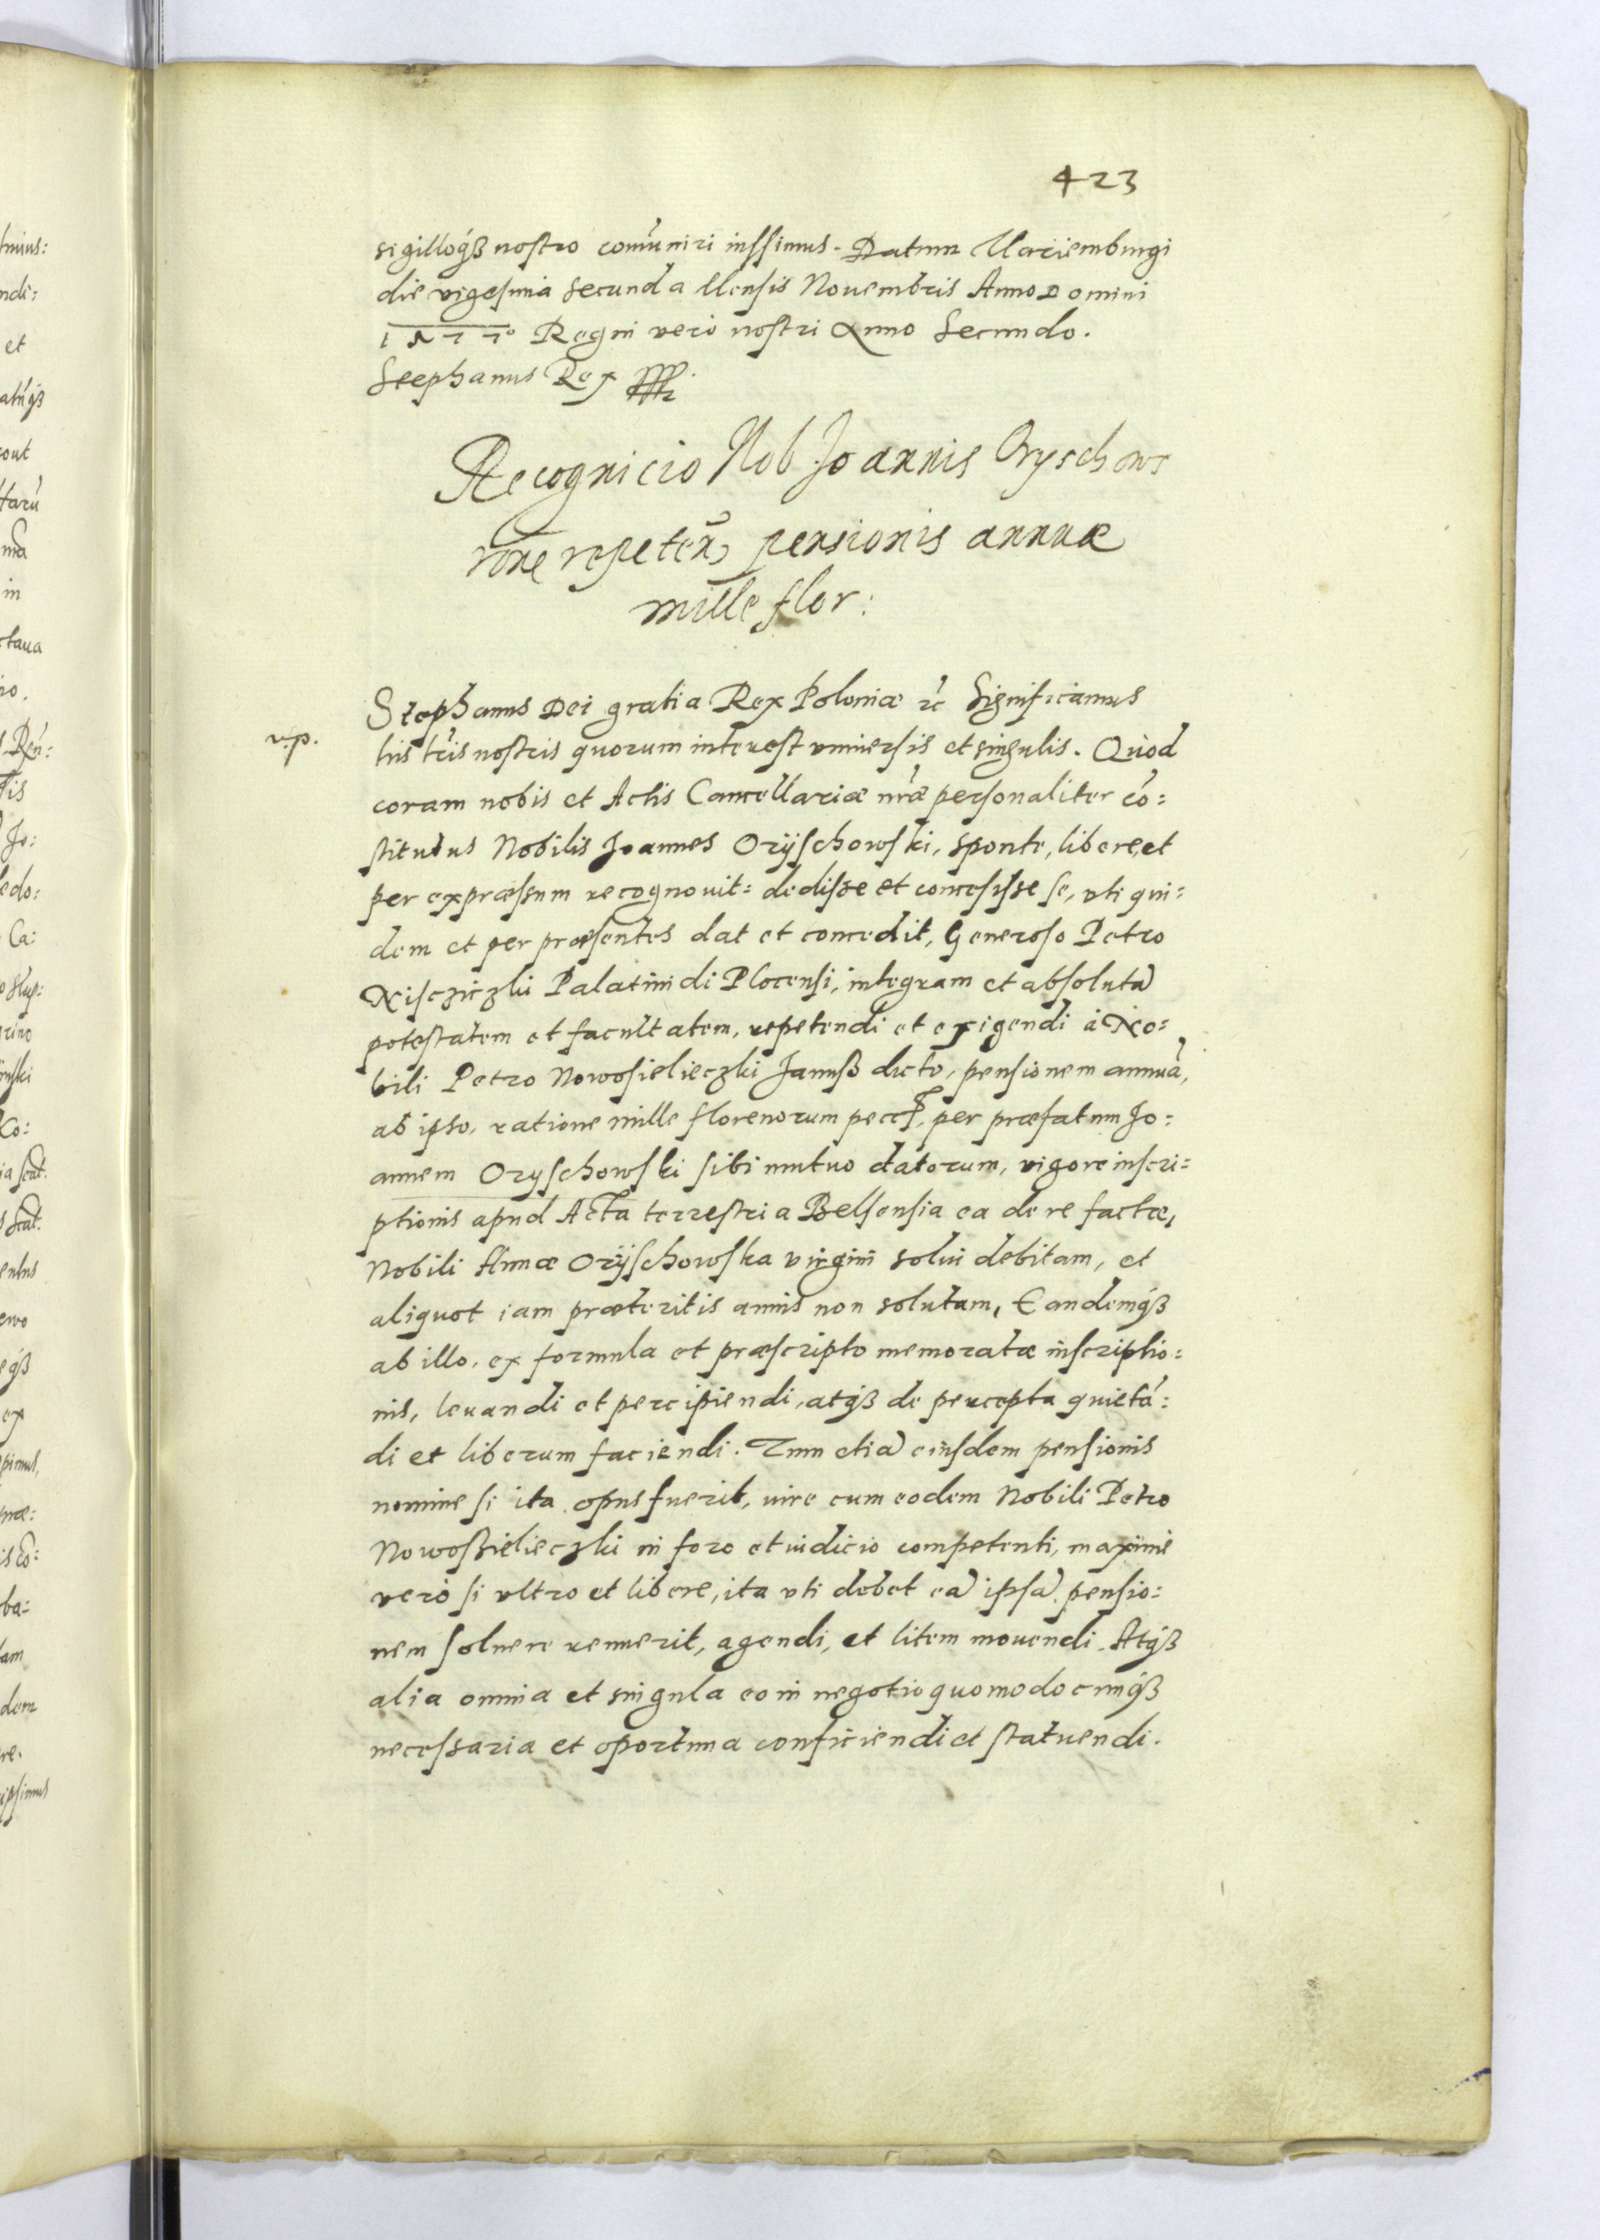 423
sigilloq(ue) nostro com̃uniri iussimus. Datum Mariemburgi
die vigesima secunda Mensis Nouembris Anno Domini
1577° Regni vero nostri Anno Secundo.
Stephanus Rex
Recognicio Nob Joannis Oryschows
rõne repeteñ pensionis annuæ
mille flor:
Stephanus Dei gratia Rex Poloniæ &c Significamus
v.p.
his lr̃is nostris quorum interest vniuersis et singulis. Quod
coram nobis et Actis Cancellariæ nr̃æ personaliter cõ=
stitutus Nobilis Joannes Orÿschowski, sponte, libere, et
per expræssum recognouit= dedisse et concessisse se, vti qui=
dem et per præsentes dat et concedit, Generoso Petro
Niscziczki Palatinidi Plocensi, integram et absolutã
potestatem et facultatem, repetendi et exigendi à No=
bili Petro Nowosielieczki Janusß dicto, pensionem annuã,
ab ipso, ratione mille florenorum pec: per præfatum Jo=
annem Oryschowski sibi mutuo datorum, vigore inscri=
ptionis apud Acta terrestria Belsensia ea de re factæ,
Nobili Annæ Orÿschowska virgini solui debitam, et
aliquot iam præteritis annis non solutam, Eandemqß
ab illo, ex formula et præscripto memoratæ inscriptio=
nis, leuandi et percipiendi, atqß de percepta quietã=
di et liberum faciendi. Tum etiã eiusdem pensionis
nomine si ita opus fuerit, iure cum eodem Nobili Petro
Nowoszielieczki in foro et iudicio competenti, maxime
vero si vltro et libere, ita vti debet eã ipsã pensio=
nem soluere renuerit, agendi, et litem mouendi. Atqß
alia omnia et singula eo in negotio quomodocunqß
necessaria et oportuna conficiendi et statuendi.